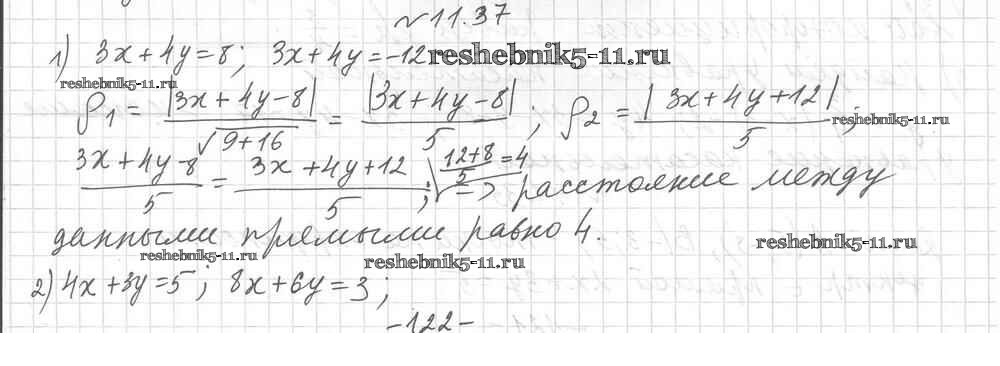 №11.37
1) 3x+4y=8; 3x+4y=-12 reshebnik5-11.ru
reshebnik5-11.ru
ρ1 = |3x+4y-8| / √9+16 = |3x+4y-8| / 5; ρ2 = |3x+4y+12| / 5;
reshebnik5-11.ru
3x+4y-8 / 5 = 3x+4y+12 / 5; √ 12+8 / 5 = 4 => расстояние между
данными прямыми равно 4.
reshebnik5-11.ru reshebnik5-11.ru reshebnik5-11.ru
2) 4x+3y=5; 8x+6y=3;
-122-